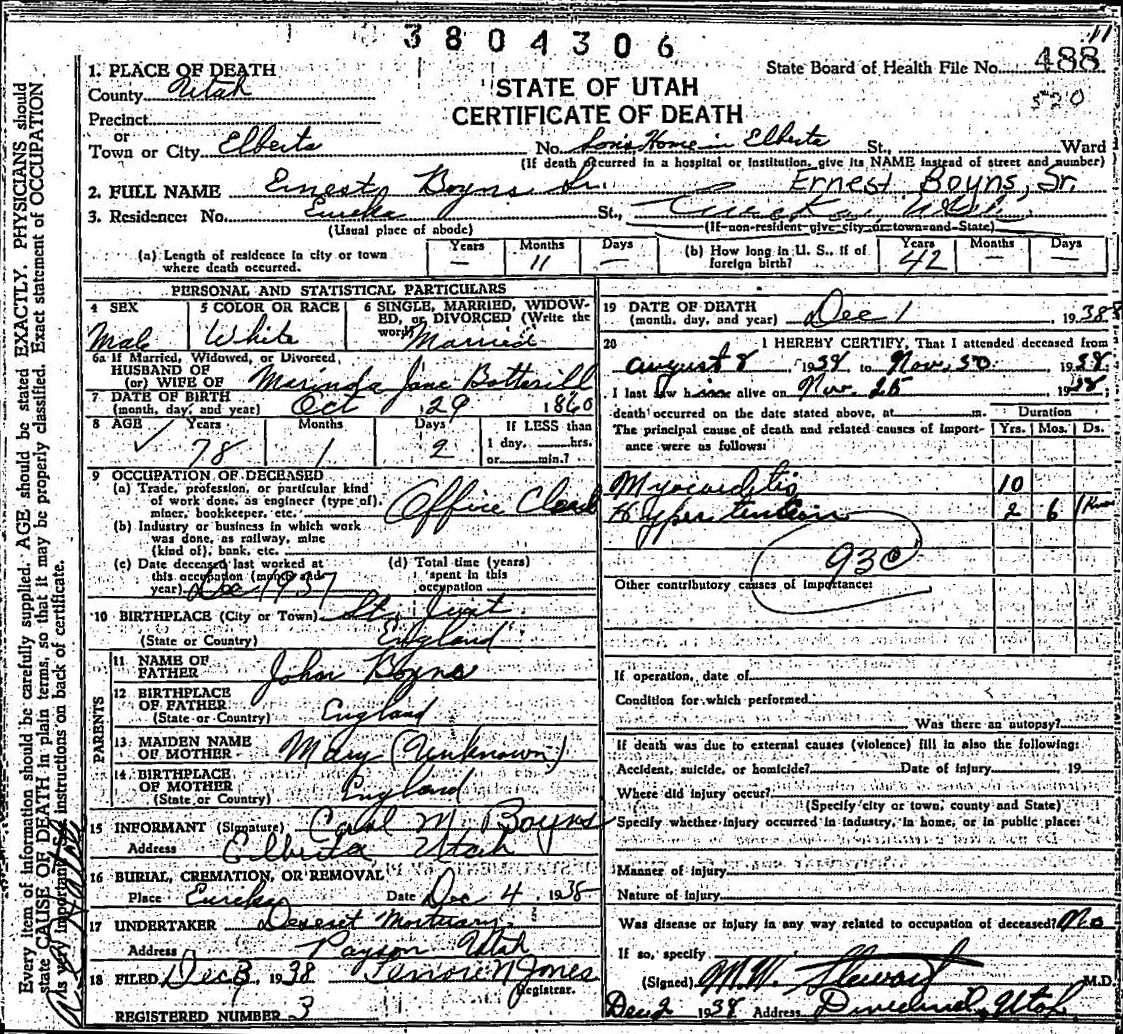 3804306
11
State Board of Health File No. 488
520
1. PLACE OF DEATH
County Utah
STATE OF UTAH
CERTIFICATE OF DEATH
Precinct
or
Town or City Elberta No. Son's Home in Elberta St., Ward
(If death occurred in a hospital or institution, give its NAME instead of street and number)
2. FULL NAME Ernest Boyns Sr. Ernest Boyns, Sr.
3. Residence: No. Eureka St., Eureka, Utah
(Usual place of abode) (If non-resident give city or town and State)
(a) Length of residence in city or town where death occurred. Years — Months 11 Days —
(b) How long in U. S., if of foreign birth? Years 42 Months — Days —
PERSONAL AND STATISTICAL PARTICULARS
4 SEX 5 COLOR OR RACE 6 SINGLE, MARRIED, WIDOW-
ED, or DIVORCED (Write the
word)
Male White Married
6a If Married, Widowed, or Divorced
HUSBAND OF
(or) WIFE OF Marinda Jane Botterill
7 DATE OF BIRTH
(month, day, and year) Oct 29 1860
8 AGE Years Months Days If LESS than
1 day, hrs.
or min.?
78 1 2
9 OCCUPATION OF DECEASED
(a) Trade, profession, or particular kind
of work done, as engineer (type of),
miner, bookkeeper, etc. Office Clerk
(b) Industry or business in which work
was done, as railway, mine
(kind of), bank, etc.
(c) Date deceased last worked at
this occupation (month and
year) Dec 1937
(d) Total time (years)
spent in this
occupation
10 BIRTHPLACE (City or Town) St. Just
(State or Country) England
PARENTS
11 NAME OF
FATHER John Boyns
12 BIRTHPLACE
OF FATHER
(State or Country) England
13 MAIDEN NAME
OF MOTHER Mary (Unknown)
14 BIRTHPLACE
OF MOTHER
(State or Country) England
15 INFORMANT (Signature) Carl M. Boyns
Address Elberta Utah
16 BURIAL, CREMATION, OR REMOVAL
Place Eureka Date Dec 4, 1938
17 UNDERTAKER Deseret Mortuary
Address Payson Utah
18 FILED Dec 3, 1938 N Jones
Registrar.
REGISTERED NUMBER 3
19 DATE OF DEATH
(month, day, and year) Dec 1 1938
20 I HEREBY CERTIFY, That I attended deceased from
August 8, 1938 to Nov. 30, 1938
I last saw him alive on Nov. 25 1938;
death occurred on the date stated above, at m.
Duration
The principal cause of death and related causes of import-
ance were as follows: Yrs. Mos. Ds.
Myocarditis 10
Hypertension 2 6
93c
Other contributory causes of importance:
If operation, date of
Condition for which performed
Was there an autopsy?
If death was due to external causes (violence) fill in also the following:
Accident, suicide, or homicide? Date of injury 19
Where did injury occur?
(Specify city or town, county and State)
Specify whether injury occurred in industry, in home, or in public place:
Manner of injury
Nature of injury
Was disease or injury in any way related to occupation of deceased? No
If so, specify
(Signed) M.W. Stewart M.D.
Dec 2 1938 Address Dividend, Utah
Every item of information should be carefully supplied. AGE should be stated EXACTLY. PHYSICIANS should
state CAUSE OF DEATH in plain terms, so that it may be properly classified. Exact statement of OCCUPATION
is very important. See instructions on back of certificate.